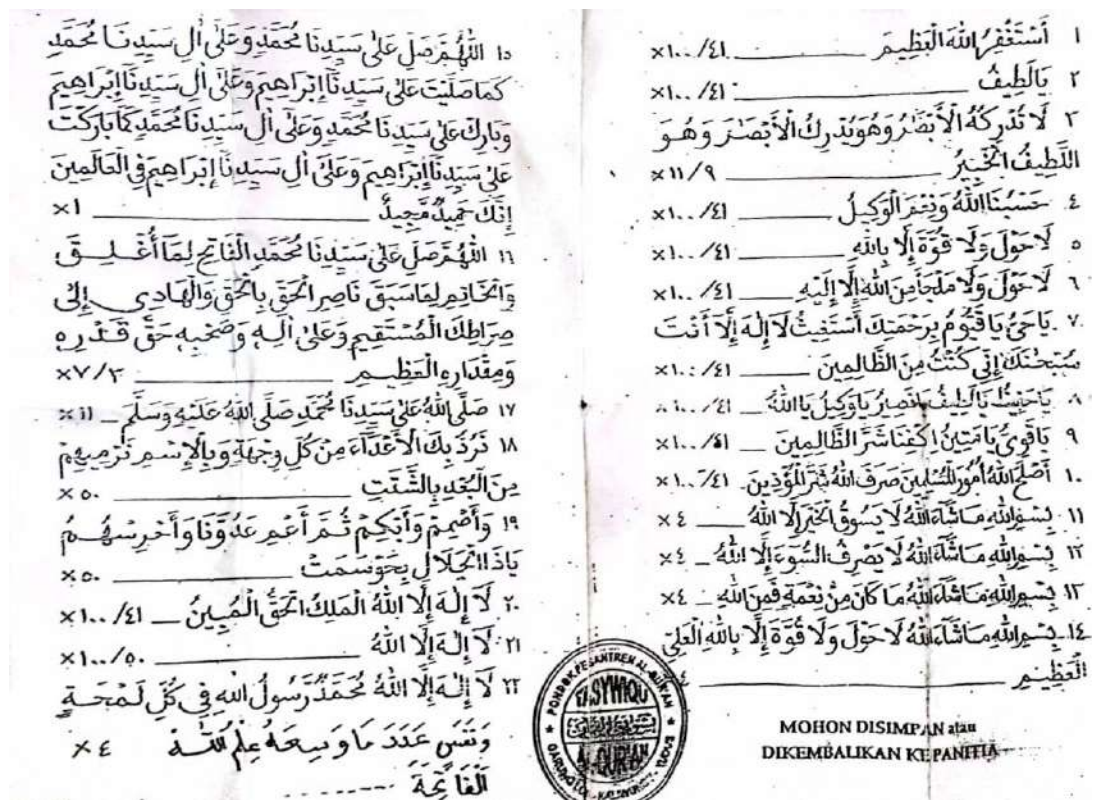 ١ أَسْتَغْفِرُ اللهَ الْعَظِيمَ ــــــ ٤١/١٠٠×
٢ يَا لَطِيفُ ــــــ ٤١/١٠٠×
٣ لَا تُدْرِكُهُ الْأَبْصَارُ وَهُوَ يُدْرِكُ الْأَبْصَارَ وَهُوَ
اللَّطِيفُ الْخَبِيرُ ــــــ ٩/١١×
٤ حَسْبُنَا اللهُ وَنِعْمَ الْوَكِيلُ ــــــ ٤١/١٠٠×
٥ لَا حَوْلَ وَلَا قُوَّةَ إِلَّا بِاللهِ ــــــ ٤١/١٠٠×
٦ لَا حَوْلَ وَلَا مَلْجَأَ مِنَ اللهِ إِلَّا إِلَيْهِ ــــــ ٤١/١٠٠×
٧ يَا حَيُّ يَا قَيُّومُ بِرَحْمَتِكَ أَسْتَغِيثُ لَا إِلٰهَ إِلَّا أَنْتَ
سُبْحٰنَكَ إِنِّي كُنْتُ مِنَ الظَّالِمِينَ ــــــ ٤١/١٠٠×
٨ يَا لَطِيفُ يَا نَصِيرُ يَا وَكِيلُ يَا اللهُ ــــــ ٤١/١٠٠×
٩ يَا قَوِيُّ يَا مَتِينُ اكْفِنَا شَرَّ الظَّالِمِينَ ــــــ ٤١/١٠٠×
١٠ أَصْلَحَ اللهُ أُمُورَ الْمُسْلِمِينَ صَرَفَ اللهُ شَرَّ الْمُؤْذِينَ ٤١/١٠٠×
١١ بِسْمِ اللهِ مَا شَاءَ اللهُ لَا يَسُوقُ الْخَيْرَ إِلَّا اللهُ ــــــ ٤×
١٢ بِسْمِ اللهِ مَا شَاءَ اللهُ لَا يَصْرِفُ السُّوءَ إِلَّا اللهُ ــــــ ٤×
١٣ بِسْمِ اللهِ مَا شَاءَ اللهُ مَا كَانَ مِنْ نِعْمَةٍ فَمِنَ اللهِ ــــــ ٤×
١٤ بِسْمِ اللهِ مَا شَاءَ اللهُ لَا حَوْلَ وَلَا قُوَّةَ إِلَّا بِاللهِ الْعَلِيِّ
الْعَظِيمِ ــــــ
MOHON DISIMPAN atau
DIKEMBALIKAN KE PANITIA
١٥ اللّٰهُمَّ صَلِّ عَلَى سَيِّدِنَا مُحَمَّدٍ وَعَلَى آلِ سَيِّدِنَا مُحَمَّدٍ
كَمَا صَلَّيْتَ عَلَى سَيِّدِنَا إِبْرَاهِيمَ وَعَلَى آلِ سَيِّدِنَا إِبْرَاهِيمَ
وَبَارِكْ عَلَى سَيِّدِنَا مُحَمَّدٍ وَعَلَى آلِ سَيِّدِنَا مُحَمَّدٍ كَمَا بَارَكْتَ
عَلَى سَيِّدِنَا إِبْرَاهِيمَ وَعَلَى آلِ سَيِّدِنَا إِبْرَاهِيمَ فِي الْعَالَمِينَ
إِنَّكَ حَمِيدٌ مَجِيدٌ ــــــ ١×
١٦ اللّٰهُمَّ صَلِّ عَلَى سَيِّدِنَا مُحَمَّدٍ الْفَاتِحِ لِمَا أُغْلِقَ
وَالْخَاتِمِ لِمَا سَبَقَ نَاصِرِ الْحَقِّ بِالْحَقِّ وَالْهَادِي إِلَى
صِرَاطِكَ الْمُسْتَقِيمِ وَعَلَى آلِهِ وَصَحْبِهِ حَقَّ قَدْرِهِ
وَمِقْدَارِهِ الْعَظِيمِ ــــــ ٣/٧×
١٧ صَلَّى اللهُ عَلَى سَيِّدِنَا مُحَمَّدٍ صَلَّى اللهُ عَلَيْهِ وَسَلَّمَ ــــــ ١١×
١٨ نَرُدُّ بِكَ الْأَعْدَاءَ مِنْ كُلِّ وِجْهَةٍ وَبِالْإِسْمِ نَرْمِيهِمْ
مِنَ الْبُعْدِ بِالشَّتَتِ ــــــ ٥٠×
١٩ وَأَصْمِمْ وَأَبْكِمْ ثُمَّ أَعْمِ عَدُوَّنَا وَأَخْرِسْهُمُ
يَا ذَا الْجَلَالِ بِحَوْسَمَتْ ــــــ ٥٠×
٢٠ لَا إِلٰهَ إِلَّا اللهُ الْمَلِكُ الْحَقُّ الْمُبِينُ ــــــ ٤١/١٠٠×
٢١ لَا إِلٰهَ إِلَّا اللهُ ــــــ ٥٠/١٠٠×
٢٢ لَا إِلٰهَ إِلَّا اللهُ مُحَمَّدٌ رَسُولُ اللهِ فِي كُلِّ لَمْحَةٍ
وَنَفَسٍ عَدَدَ مَا وَسِعَهُ عِلْمُ اللهِ ٤×
الْفَاتِحَةَ ........
PONDOK PESANTREN AL-QUR'AN
TASYWIQU
AL-QUR'AN